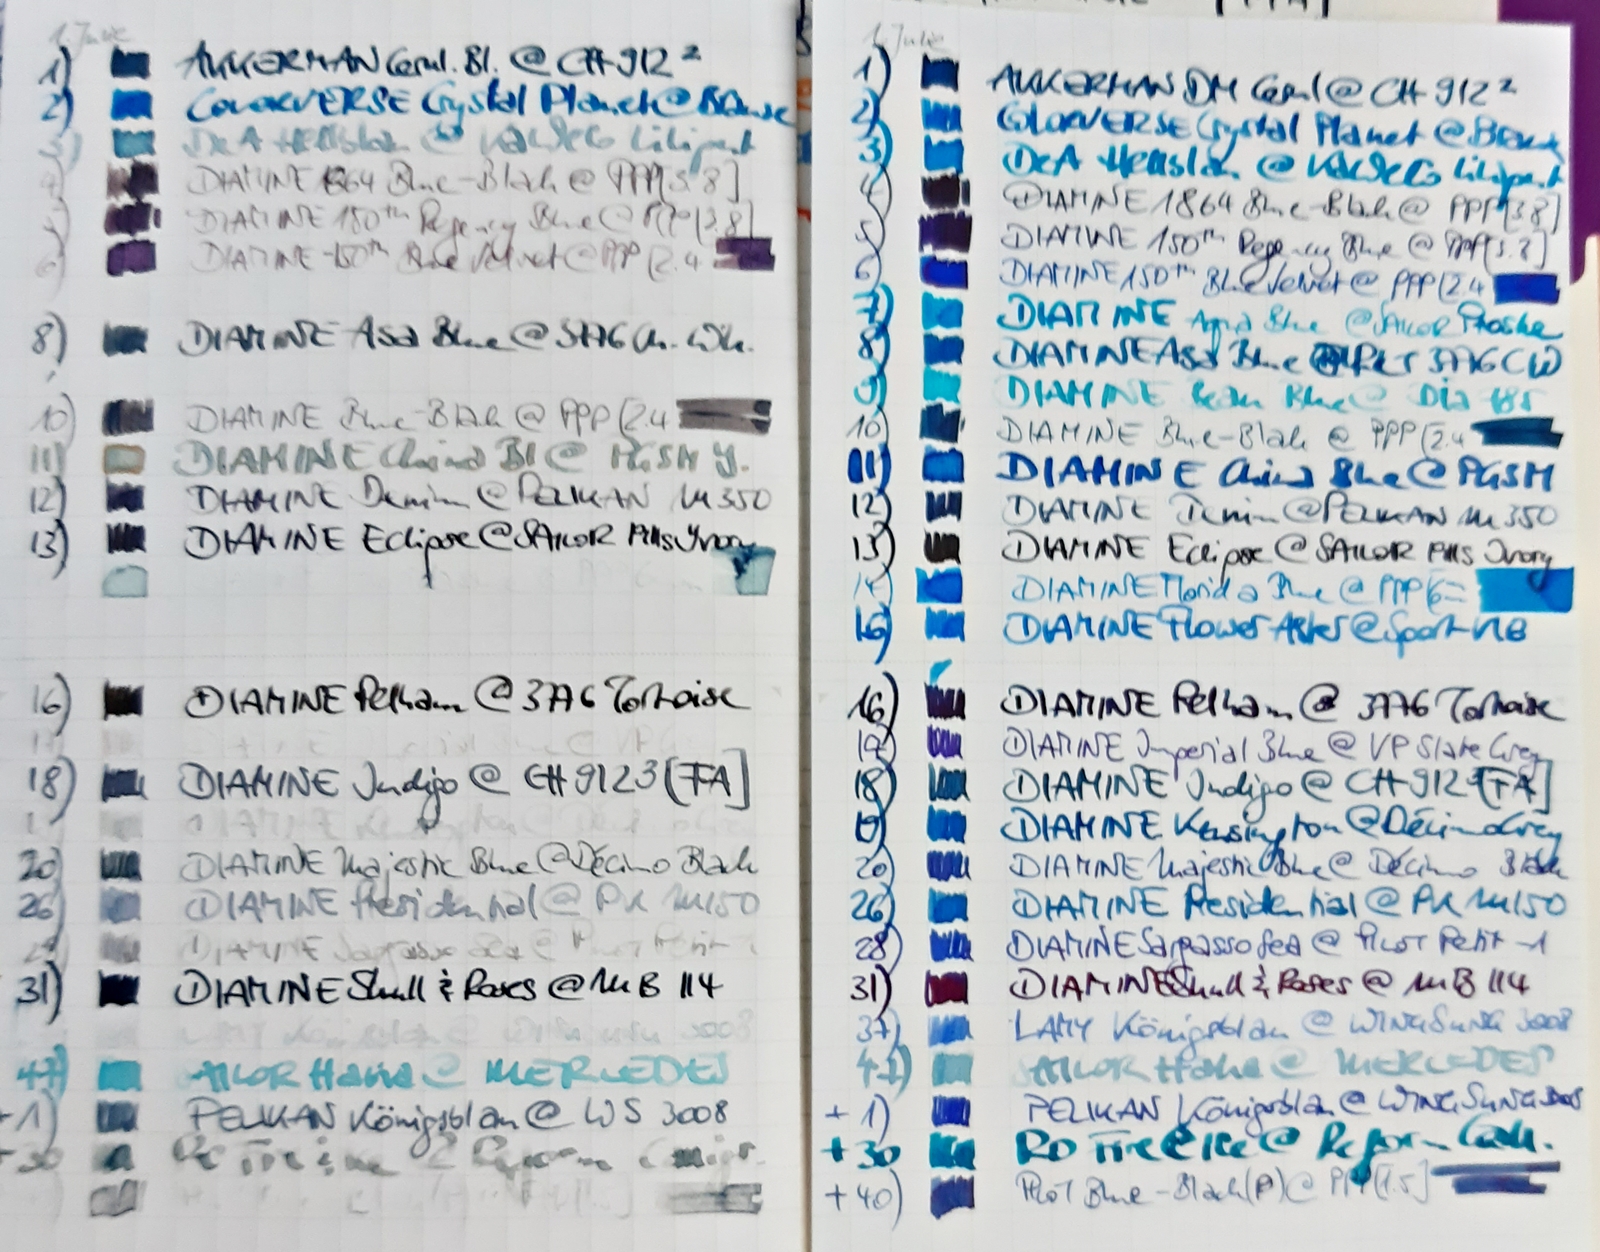 1. Julie
1) AKKERMAN Cerul. Bl. @ CH 912 2
2) COLORVERSE Crystal Planet @ Bause
3) DeA Hellblau @ KaWeCo Liliput
4) DIAMINE 1864 Blue-Black @ PPP[3.8]
5) DIAMINE 150th Regency Blue @ PPP[3.8]
6) DIAMINE 150th Blue Velvet @ PPP[2.4
8) DIAMINE Asa Blue @ 3776 Ch. Wh.
10) DIAMINE Blue-Black @ PPP[2.4
11) DIAMINE China Bl @ PGSM Y.
12) DIAMINE Denim @ PELIKAN M350
13) DIAMINE Eclipse @ SAILOR Pills Ivory
16) DIAMINE Pelham @ 3776 Tortoise
18) DIAMINE Indigo @ CH 912 3 [FA]
20) DIAMINE Majestic Blue @ Décimo Black
26) DIAMINE Presidential @ PK M150
28) DIAMINE Sargasso Sea @ Pilot Petit-1
31) DIAMINE Skull & Roses @ MB 114
LAMY Königsblau @ WINGSUNG 3008
47) SAILOR Haha @ MERCEDES
+1) PELIKAN Königsblau @ WS 3008
+30
1. Julie
1) AKKERMAN DM Cerul @ CH 912 2
2) COLORVERSE Crystal Planet @ Bause
3) DeA Hellblau @ KaWeCo Liliput
4) DIAMINE 1864 Blue-Black @ PPP[3.8]
5) DIAMINE 150th Regency Blue @ PPP[3.8]
6) DIAMINE 150th Blue Velvet @ PPP[2.4
7) DIAMINE Aqua Blue @ SAILOR Proske
8) DIAMINE Asa Blue @ PLT 3776 CW
9) DIAMINE Beau Blue @ Dia 185
10) DIAMINE Blue-Black @ PPP[2.4
11) DIAMINE China Blue @ PGSM
12) DIAMINE Denim @ PELIKAN M350
13) DIAMINE Eclipse @ SAILOR Pills Ivory
14) DIAMINE Florida Blue @ PPP
15) DIAMINE Flower Aster @ Sport-NB
16) DIAMINE Pelham @ 3776 Tortoise
17) DIAMINE Imperial Blue @ VP Slate Grey
18) DIAMINE Indigo @ CH 912 [FA]
19) DIAMINE Kensington @ Décimo Grey
20) DIAMINE Majestic Blue @ Décimo Black
26) DIAMINE Presidential @ PK M150
28) DIAMINE Sargasso Sea @ Pilot Petit-1
31) DIAMINE Skull & Roses @ MB 114
37) LAMY Königsblau @ WINGSUNG 3008
47) SAILOR Haha @ MERCEDES
+1) PELIKAN Königsblau @ WINGSUNG 3008
+30 RO @ Reform Calli.
+40) Pilot Blue-Black(P) @ PPP[1.5]